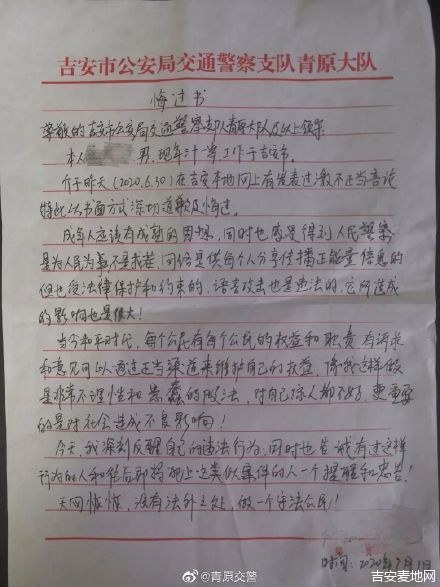 吉安市公安局交通警察支队青原大队
悔过书
尊敬的吉安市公安局交通警察支队青原大队及以上领导:
本人 男,现年 岁 工作于吉安市。
介于昨天(2020.6.30)在吉安本地网上有发表过激不正当言论
特此以书面方式深切道歉及悔过。
成年人应该有成熟的思想,同时也感受得到人民警察
是为人民办事不是找茬,网络是供每个人分享传播正能量信息的
但也受法律保护和约束的,语言攻击也是违法的,它所造成
的影响也是很大!
当今和平时代,每个公民有每个公民的权益和职责,有诉求
和意见可以通过正当渠道来维护自己的权益,像我这样做
是非常不理性和愚蠢的做法,对自己综人都不好,更重要
的是对社会造成不良影响!
今天,我深刻反醒自己的违法行为,同时也告诫有过这样
行为的人和往后即将犯上这类似事件的人一个提醒和忠告!
天网恢恢,没有法外之处,做一个守法公民!!
时间:2020年7月1日
@青原交警
吉安麦地网